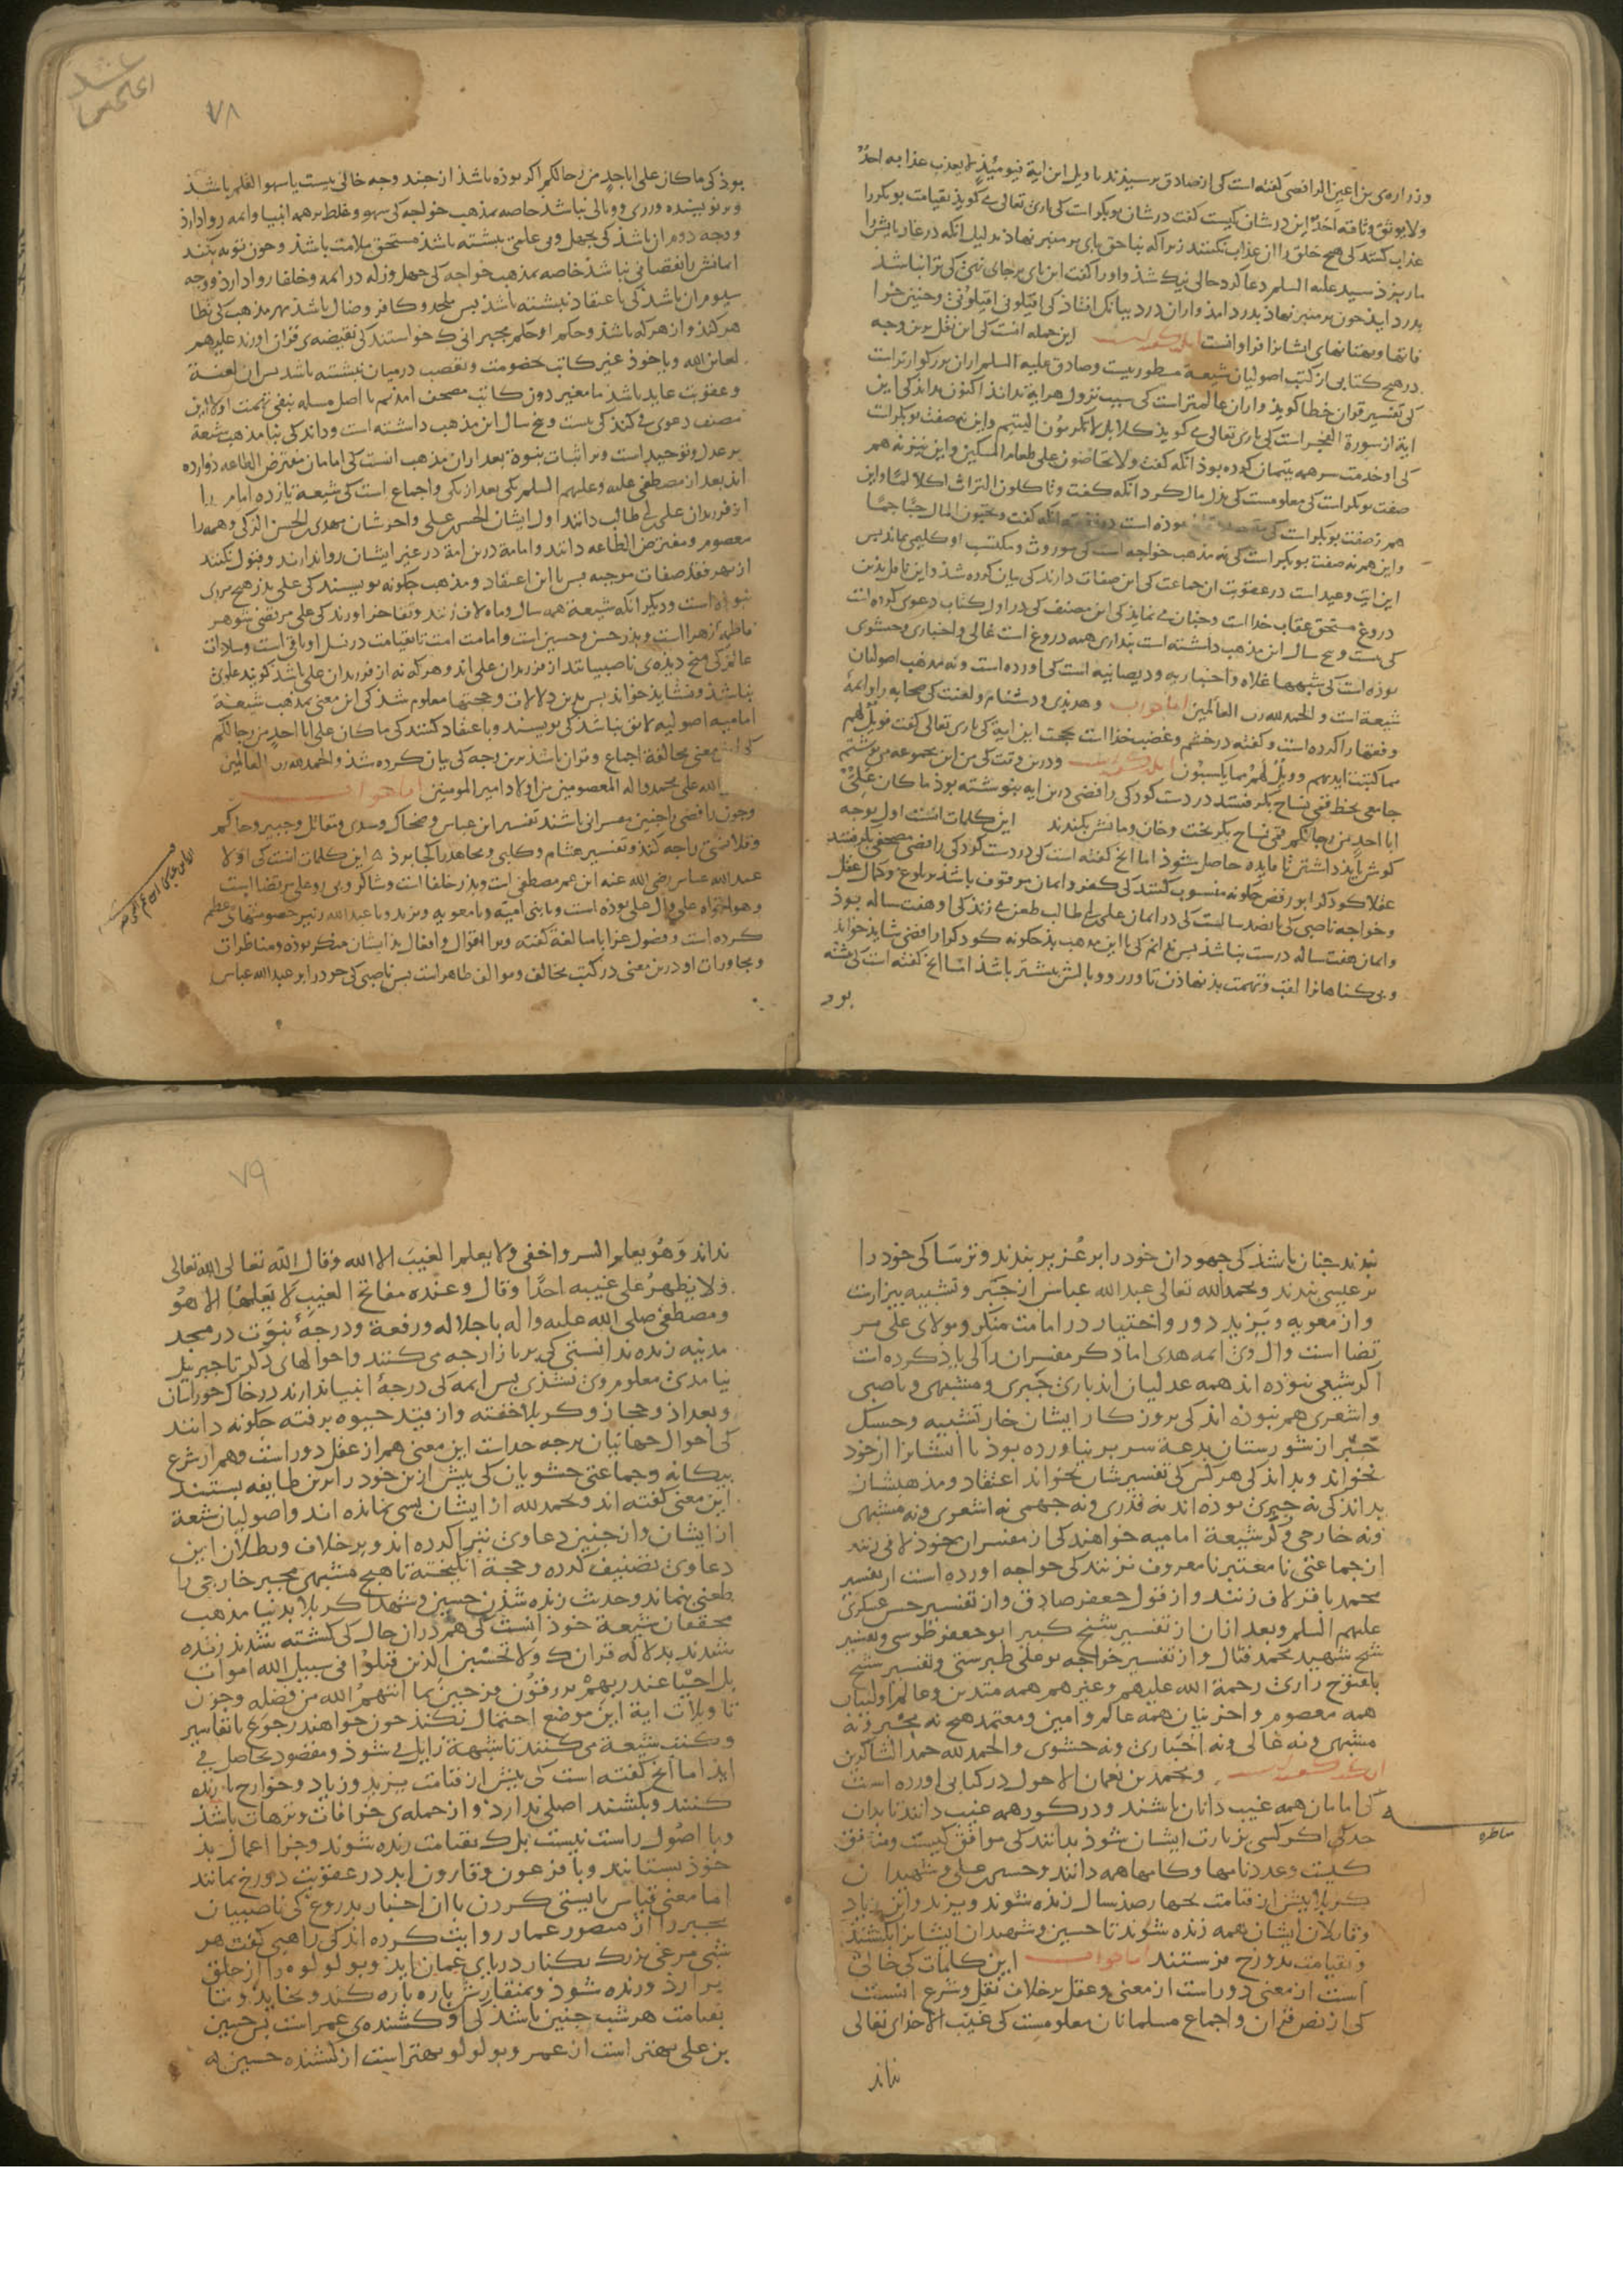 وزراره‌ی بن اعین الرافضی گفته است کی از صادق پرسیدند تاویل این ایة فیومیذٍ لا یعذب عذابه احدٌ
ولا یوثق وثاقه احدٌ این در شان کیست گفت در شان بوبکر است کی باری تعالی می کوید بقیامت بوبکر را
عذاب کنند کی هیچ خلق را ان عذاب نکنند زیرا که بناحق پای بر منبر نهاذ بدلیل انکه در غار پایش را
مار بزذ سید علیه السلم دعا کرد حالی نیک شذ و اورا گفت این پای بر جای نهی کی ترا نباشذ
بدرد ایذ چون بر منبر نهاذ بدرد امذ و از ان درد ببانک افتاذ کی اقیلونی اقیلونی و چنین خرا
فاتها و بهتانهای ایشانرا فراوانست این جمله انست کی این نقل برین وجه
در هیچ کتابی از کتب اصولیان شیعة مسطور نیست و صادق علیه السلم از ان بزرکوارتر است
کی تفسیر قران خطا کوید و از ان عالمتر است کی سبب نزول هر ایه نداند اکنون بداند کی این
ایة از سورة الفجر است کی باری تعالی می کوید کلا بل لا تکرمون الیتیم و این نه صفت بوبکرست
کی او خدمت سر همه یتیمان کرده بوذ انکه گفت ولا تحاضون علی طعام المسکین و این نیز نه هم
صفت بوبکر است کی معلومست کی بذل مال کرد انکه گفت و تاکلون التراث اکلا لما و این
هم نه صفت بوبکر است کی بوذه است انکه گفت و تحبون المال حبا جما
و این هم نه صفت بوبکر است کی نه مذهب خواجه است کی موروث و مکتسب او کلیمی بماند پس
این ایت وعید است در عقوبت ان جماعت کی این صفات دارند کی بیان کرده شذ و این تاویل بدین
دروغ مستحق عقاب خدا است و چنان می نماید کی این مصنف کی در اول کتاب دعوی کرده است
کی بیست و پنج سال این مذهب داشته است پنداری همه دروغ است غالی و اخباری و حشوی
بوذه است کی شبهها غلاة و اخباریه و دیصانیه است کی اورده است و نه مذهب اصولیان
شیعة است و الحمد لله رب العالمین اما جواب و هر بذی و دشنام و لعنت کی صحابه را و ایمة
و فقها را کرده است و گفته در خشم و غضب خدا است بحجت این ایة کی باری تعالی گفت فویل لهم
مما کتبت ایدیهم وویل لهم مما یکسبون و درین وقت کی من این مجموعه می نوشتم
جامعی بخط فتحی نساخ بکرفتند در دست کودکی رافضی درین ایه بنوشته بوذ ما کان علیٌ
ابا احدٍ من رجالکم فتحی نساخ بکریخت و خان و مانش بکندند این کلمات انست اول بوجه
کوش باید داشتن تا فایده حاصل شوذ اما انچ گفته است کی در دست کودکی رافضی مصحفی بکرفتند
عقلا کوذک را بو رفض چکونه منسوب کنند کی کفر و ایمان موقوف باشد بر بلوغ و کمال عقل
و خواجه ناصبی کی پانصد سالست کی در ایمان علی بو طالب طعن می زند کی او هفت ساله بوذ
و ایمان هفت ساله درست نباشد پس ندانم کی با این مذهب بذ چکونه کودک را رافضی شاید خواند
و بی کناهانرا لقب و تهمت بد نهاذن تا وزر و وبالش بیشتر باشذ اما انچ گفته است کی نبشته
بود
۷۸
بوذ کی ما کان علی ابا احدٍ من رجالکم اکر بوذه باشذ از چند وجه خالی نیست یا سهو القلم باشذ
و بر نویسنده وزری و وبالی نباشذ خاصه بمذهب خواجه کی سهو و غلط بر همه انبیا و ایمه روا دارذ
و وجه دوم ان باشذ کی بجهل و بی علمی نبشته باشذ مستحق ملامت باشذ و چون توبه بکند
ایمانش را نقصانی نباشذ خاصه بمذهب خواجه کی جهل و زلة در ایمه و خلفا روا دارذ و وجه
سیوم ان باشذ کی باعتقاذ نبشته باشذ پس ملحد و کافر و ضال باشذ بهر مذهب کی خطا
هر کند و از هر که باشذ و حکم او حکم مجبرانی که خواستند کی نقیضه‌ی قران اورند علیهم
لعاین الله و یا خوذ غیر کاتب خصومت و تعصب در میان نبشته باشد پس ان لعنة
و عقوبت عاید باشذ با مغیر دون کاتب مصحف امدیم با اصل مسله بنفی تهمت اولا این
مصنف دعوی می کند کی بیست و پنج سال این مذهب داشته است و داند کی بنا مذهب شیعة
بر عدل و توحید است و بر اثبات نبوة بعد از ان مذهب انست کی امامان مفترض الطاعه دوازده
اند بعد از مصطفی علیه و علیهم السلم یکی بعد از یکی و اجماع است کی شیعة یازده امام را
از فرزندان علی بو طالب دانند اول ایشان الحسن علی و اخرشان مهدی بن الحسن الزکی و همه را
معصوم و مفترض الطاعه دانند و امامة درین امة در غیر ایشان روا ندارند و قبول نکنند
از بهر فقد صفات موجبه پس با این اعتقاد و مذهب چکونه نویسند کی علی پدر هیچ مردی
نبوذه است و دیکر انکه شیعة همه سال و ماه لاف زنند و تفاخر اورند کی علی مرتضی شوهر
فاطمه زهرا است و پذر حسن و حسین است و امامت امت تا بقیامت در نسل او باقی است و سادات
عالم کی میخ دیذه‌ی ناصبیانند از فرزندان علی اند و هر که نه از فرزندان علی باشذ کویند علوی
نباشذ و نشاید خواند پس بدین دلالات و حجتها معلوم شذ کی این معنی بمذهب شیعة
امامیه اصولیه لایق نباشذ کی نویسند و یا اعتقاد کنند کی ما کان علی ابا احدٍ من رجالکم
کی این معنی مخالفة اجماع و قران باشذ برین وجه کی بیان کرده شذ و الحمد لله رب العالمین
الله علی محمد و اله المعصومین من اولاد امیر المومنین اما جواب
و چون رافضی را چنین مفسرانی باشند تفسیر ابن عباس و ضحاک و سدی و مقاتل و جبیر و حاکم
و فلانسی را چه کند و تفسیر هشام و کلبی و مجاهد را کجا برذ این کلمات انست کی اولا
عبد الله عباس رضی الله عنه ابن عم مصطفی است و پدر خلفا است و شاکرد و پی رو علی مرتضا است
و هواخواه علی و ال علی بوذه است و با بنی امیه و با معویه و یزید و با عبد الله زبیر خصومتهای عظیم
کرده است و فضول عزا با مبالغة گفته و بر اقوال و افعال بذ ایشان منکر بوذه و مناظرات
و مجاورات او درین معنی در کتب مخالف و موالف ظاهر است پس ناصبی کی خود را بر عبد الله عباس
بندد چنان باشذ کی جهودان خود را بر عُزیر بندند و ترسا کی خود را
بر عیسی بندند و بحمد الله تعالی عبد الله عباس از جبر و تشبیه بیزارست
و از معویه و یزید دور و اختیار در امامت منکر و مولای علی مر
تضا است و ال وی ایمه هدی اما ذکر مفسران دالی یاد کرده است
اکر شیعی نبوذه اند همه عدلیان اند باری جبری و مشبهی و ناصبی
و اشعری هم نبوذه اند کی بروزکار ایشان خار تشبیه و حسک
جبر از شورستان بدعة سر بر نیاورده بود تا ایشانرا از خود
نخواند و بداند کی هر کس کی تفسیرشان نخواند اعتقاد و مذهبشان
بداند کی نه جبری بوذه اند نه قدری و نه جهمی نه اشعری و نه مشبهی
و نه خارجی و اکر شیعة امامیه خواهند کی از مفسران خود لافی زنند
از جماعتی نا معتبر نا معروف نزنند کی خواجه اورده است از تفسیر
محمد باقر لاف زنند و از قول جعفر صادق و از تفسیر حسن عسکری
علیهم السلم و بعد از ان از تفسیر شیخ کبیر ابو جعفر طوسی و تفسیر
شیخ شهید محمد فتال و از تفسیر خواجه بو علی طبرسی و تفسیر شیخ
بلفتوح رازی رحمة الله علیهم و غیرهم همه متدین و عالم اولینان
همه معصوم و اخرینان همه عالم و امین و معتمد هیچ نه مجبر و نه
مشبهی و نه غالی و نه اخباری و نه حشوی و الحمد لله حمد الشاکرین
و محمد بن نعمان الاحول در کتابی اورده است
کی امامان همه غیب دانان باشند و در کور همه غیب دانند تا بدان
حد کی اکر کسی بزیارت ایشان شوذ بدانند کی موافق کیست و منافق
کیست و عدد نامها و کامها همه دانند و حسین علی و شهیدان
کربلا پیش از قیامت بچهارصذ سال زنده شوند و یزید و ابن زیاد
و قاتلان ایشان همه زنده شوند تا حسین و شهیدان ایشانرا بکشند
و بقیامت بدوزخ فرستند اما جواب این کلمات کی خالی
است از معنی دور است از معنی و عقل بر خلاف نقل و شرع انست
کی از نص قران و اجماع مسلمانان معلومست کی غیب الا خدای تعالی
نداند
مناظره
۷۹
نداند وَهُوَ یعلم السر واخفی ولا یعلم الغیب الا الله وقال الله تعالی الله تعالی
ولا یظهرُ علی غیبه احدًا وقال وعنده مفاتح الغیب لا یعلمها الا هُو
و مصطفی صلی الله علیه و اله با جلالة و رفعة و درجهٔ نبوت در مسجد
مدینه زنده ندانستی کی بر بازار چه می کنند و احوالهای دکر تا جبریل
نیامدی معلوم وی نشذی پس ایمه کی درجهٔ انبیا ندارند در خاک خوراسان
و بغداد و حجاز و کربلا خفته و از قید حیوة برفته چکونه دانند
کی احوال جهانیان برچه حد است این معنی هم از عقل دور است و هم از شرع
بیکانه و جماعتی حشویان کی پیش ازین خود را برین طایفه بستند
این معنی گفته اند و بحمد لله از ایشان بسی نمانده اند و اصولیان شیعة
از ایشان و از چنین دعاوی تبرا کرده اند و بر خلاف و بطلان این
دعاوی تصنیف کرده و حجة انکیخته تا هیچ مشبهی مجبر خارجی را
طعنی نماند و حدیث زنده شذن حسین و شهدا کربلا بدنیا مذهب
محققان شیعة خوذ انست کی هم در ان حال کی کشته شدند زنده
شدند بدلاله قران که ولا تحسبن الذین قتلوا فی سبیل الله امواتا
بل احیا عند ربهم یرزقون فرحین بما اتیهم الله من فضله و چون
تاویلات ایة این موضع احتمال نکند چون خواهند رجوع با تفاسیر
و کتب شیعة می کنند تا شبهة زایل می شوذ و مقصود بحاصل می
اید اما انچ گفته است کی پیش از قیامت یزید و زیاد و خوارج را زنده
کنند و بکشند اصلی ندارد و از جمله‌ی خرافات و ترهات باشذ
و با اصول راست نیست بلک بقیامت زنده شوند و جزا اعمال بذ
خوذ بستانند و با فرعون و قارون ابد در عقوبت دوزخ بمانند
اما معنی قیاس بایستی کردن با ان اخبار بدروغ کی ناصبیان
مجبر را از منصور عمار روایت کرده اند کی راهبی گفت هر
شبی مرغی بزرک بکنار دریای عمان اید و بولولوه را از حلق
بر ارذ و زنده شوذ و بمنقارش باره باره کند و بخاید و تا
بقیامت هر شب چنین باشذ کی او کشنده‌ی عمر است پس حسین
بن علی بهتر است از عمر و بولولو بهتر است از کشنده حسین